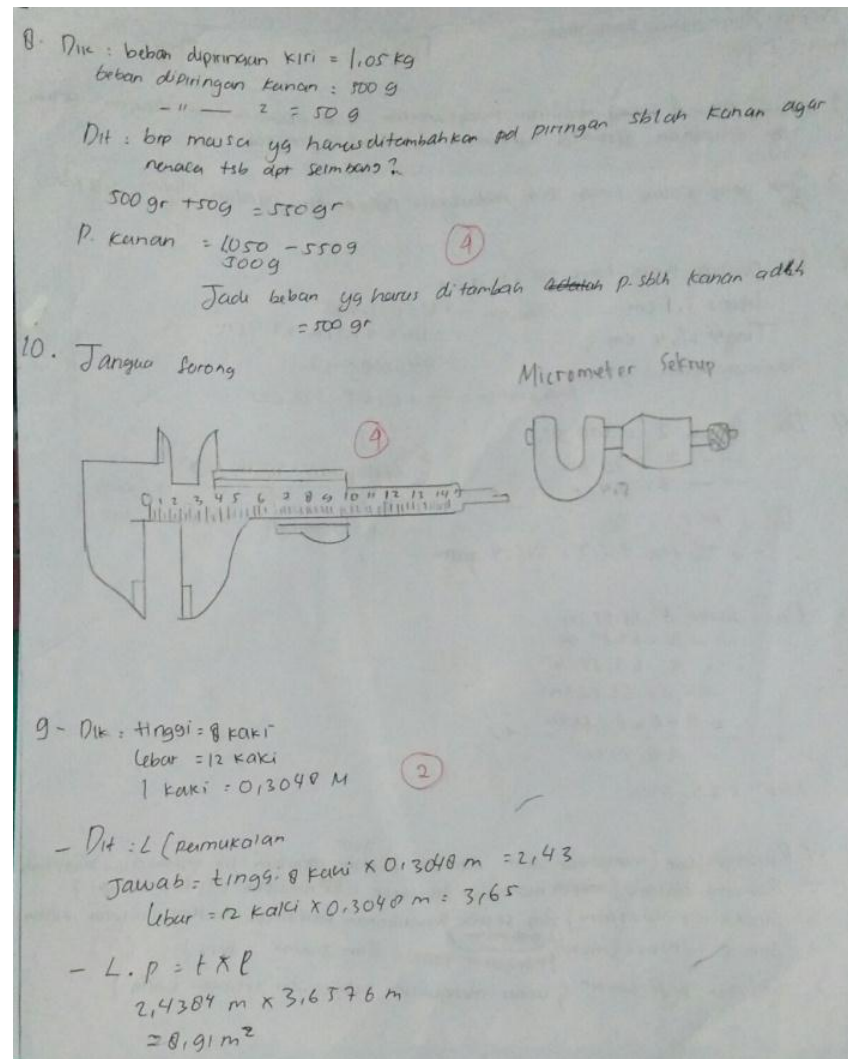 8. Dik : beban dipiringan kiri = 1,05 kg
beban dipiringan kanan : 500 g
— " — 2 = 50 g
Dit : brp massa yg harus ditambahkan pd piringan sblah kanan agar
neraca tsb dpt seimbang?
500 gr + 50g = 550 gr
P. kanan = 1.050 - 550 g
500 g
4
Jadi beban yg harus ditambah p. sblh kanan adlh
= 500 gr
10. Jangua Sorong
Micrometer Sekrup
4
0 1 2 3 4 5 6 7 8 9 10 11 12 13 14
9 - Dik : tinggi = 8 kaki
Lebar = 12 kaki
1 kaki = 0,3048 M
2
- Dit : L (permukaan
Jawab = tinggi 8 kaki x 0,3048 m = 2,43
Lebar = 12 kaki x 0,3048 m = 3,65
- L. p = t x l
2,4384 m x 3,6576 m
= 8,91 m²